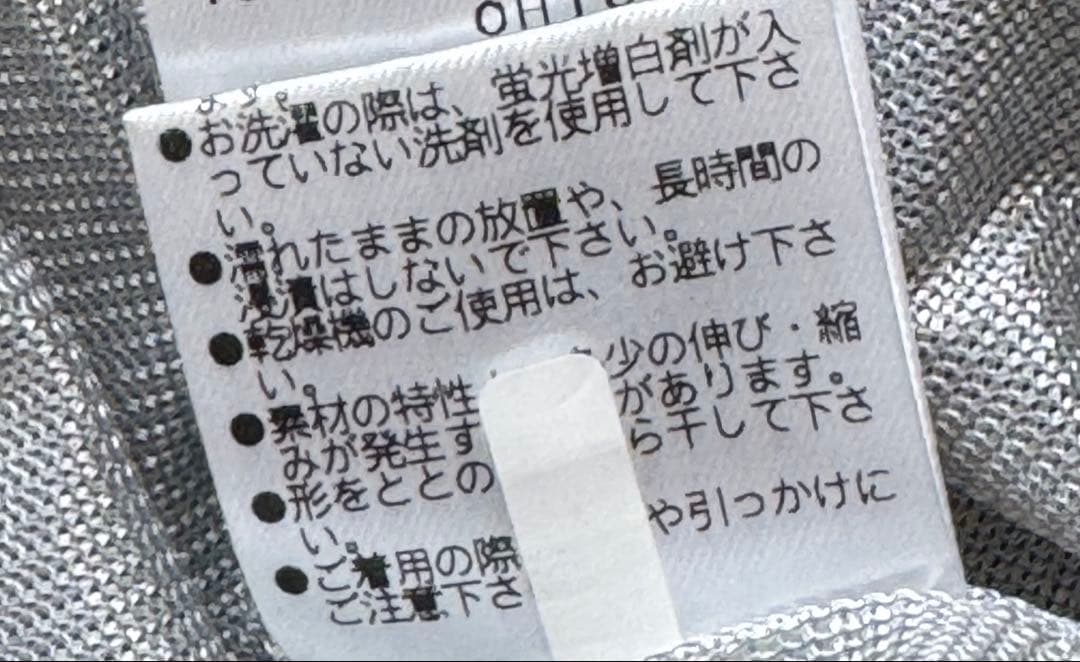 ます。
●お洗濯の際は、蛍光増白剤が入
っていない洗剤を使用して下さ
い。
●濡れたままの放置や、長時間の
浸漬はしないで下さい。
●乾燥機のご使用は、お避け下さ
い。
●素材の特性 少の伸び・縮
みが発生す があります。
●形をととの ら干して下さ
い。
●ご着用の際 や引っかけに
ご注意下さ